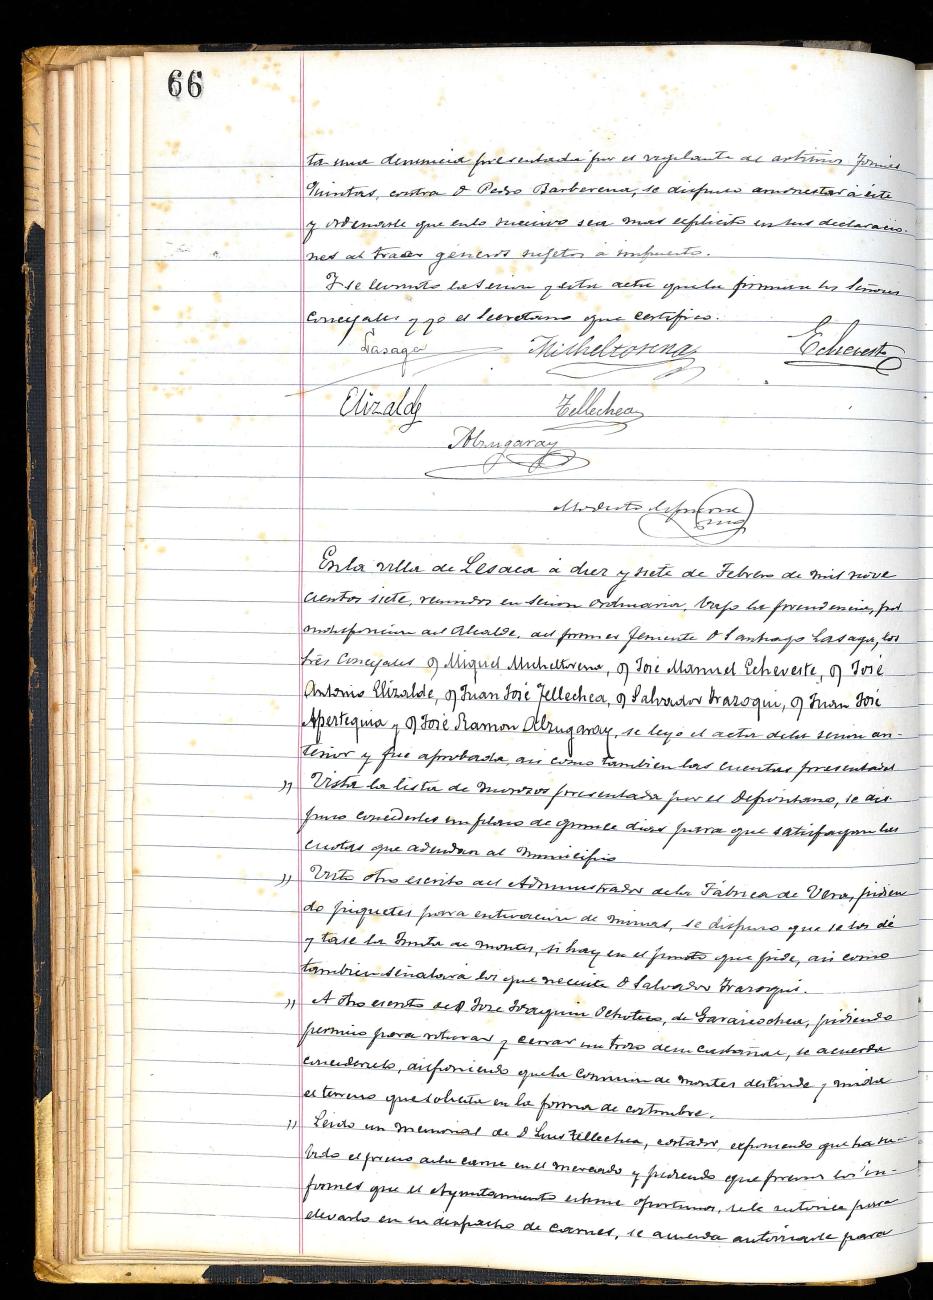 66
ta una denuncia presentada por el vigilante de arbitrios Tomás
Quintas, contra D Pedro Barberena, se dispuso amonestar á éste
y ordenarle que en lo sucesivo sea mas esplicito en sus declaracio-
nes al traer géneros sujetos á impuesto.
Y se levantó la sesion y esta acta que la firman los Señores
Concejales y yo el Secretario que certifico.
Lasaga Michelzorena Echeveste
Elizalde Tellechea
Abzugaray
Modesto
En la villa de Lesaca á diez y siete de Febrero de mil nove
cientos siete, reunidos en sesion ordinaria, bajo la presidencia, por
indisposicion del Alcalde, del primer Teniente D Santiago Lasaga, los
Sres Concejales D Miguel Micheltorena, D José Manuel Echeveste, D José
Antonio Elizalde, D Juan José Tellechea, D Salvador Irazoqui, D Juan José
Apertequia y D José Ramon Abzugaray, se leyó el acta de la sesion an-
terior y fue aprobada, asi como tambien las cuentas presentadas
" Vista la lista de morosos presentada por el Depositario, se dis-
puso concederles un plazo de quince dias para que satisfagan las
cuotas que adeudan al municipio
" Visto otro escrito del Administrador de la Fábrica de Vera, pidien
do piquetes para entivacion de minas, se dispuso que se los dé
y tase la Junta de montes, si hay en el punto que pide, asi como
tambien señalará los que necesite D Salvador Irazoqui.
" A otro escrito de D José Joaquin, de Garaicochea, pidiendo
permiso para roturar y cerrar un trozo de su castañal, se acuerda
concederselo, disponiendo que la Comision de montes deslinde y mida
el terreno que solicita en la forma de costumbre.
" Leido un memorial de D Luis Tellechea, cortador, exponiendo que ha su-
bido el precio de la carne en el mercado y pidiendo que previos los in-
formes que el Ayuntamiento estime oportunos, se le autorice para
elevarlo en su despacho de carnes, se acuerda autorizarle para